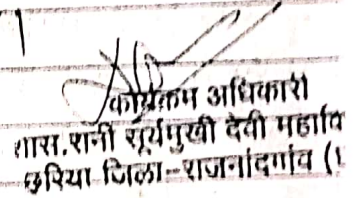 कार्यक्रम अधिकारी
शास.रानी सूर्यमुखी देवी महावि
छुरिया जिला-राजनांदगांव (